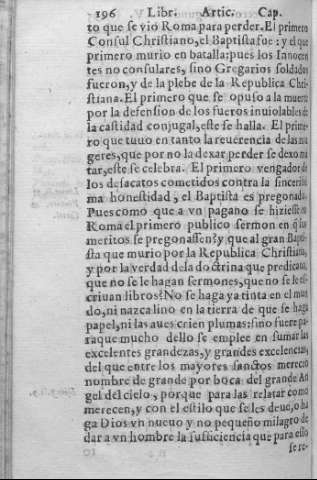 196 Libr. Artic. Cap.
to que se vio Roma para perder. El primero
Consul Christiano, el Baptista fue: y el que
primero murio en batalla: pues los Innocen
tes no consulares, sino Gregarios soldados
fueron, y de la plebe de la Republica Chri-
stiana. El primero que se opuso a la muerte
por la defension de los fueros inuiolables de
la castidad conjugal, este se halla. El prime-
ro que tuuo en tanto la reuerencia de las mu
geres, que por no la dexar perder se dexo ma
tar, este se celebra. El primero vengador de
los desacatos cometidos contra la sincerissi
ma honestidad, el Baptista es pregonado.
Pues como que a vn pagano se hiziesse en
Roma el primero publico sermon en q̃ sus
meritos se pregonassen? y que al gran Bapti-
sta que murio por la Republica Christiana,
y por la verdad de la doctrina que predicaua,
que no se le hagan sermones, que no se le es-
criuan libros? No se haga ya tinta en el mun
do, ni nazca lino en la tierra de que se haga
papel, ni las aues crien plumas: sino fuere pa-
ra que mucho dello se emplee en sumar las
excelentes grandezas, y grandes excelencias
del que entre los mayores sanctos merecio
nombre de grande por boca del grande An
gel del cielo, porque para las relatar como
merecen, y con el estilo que se les deue, o ha
ga Dios vn nueuo y no pequeño milagro de
dar a vn hombre la sufficiencia que para esso
se re-